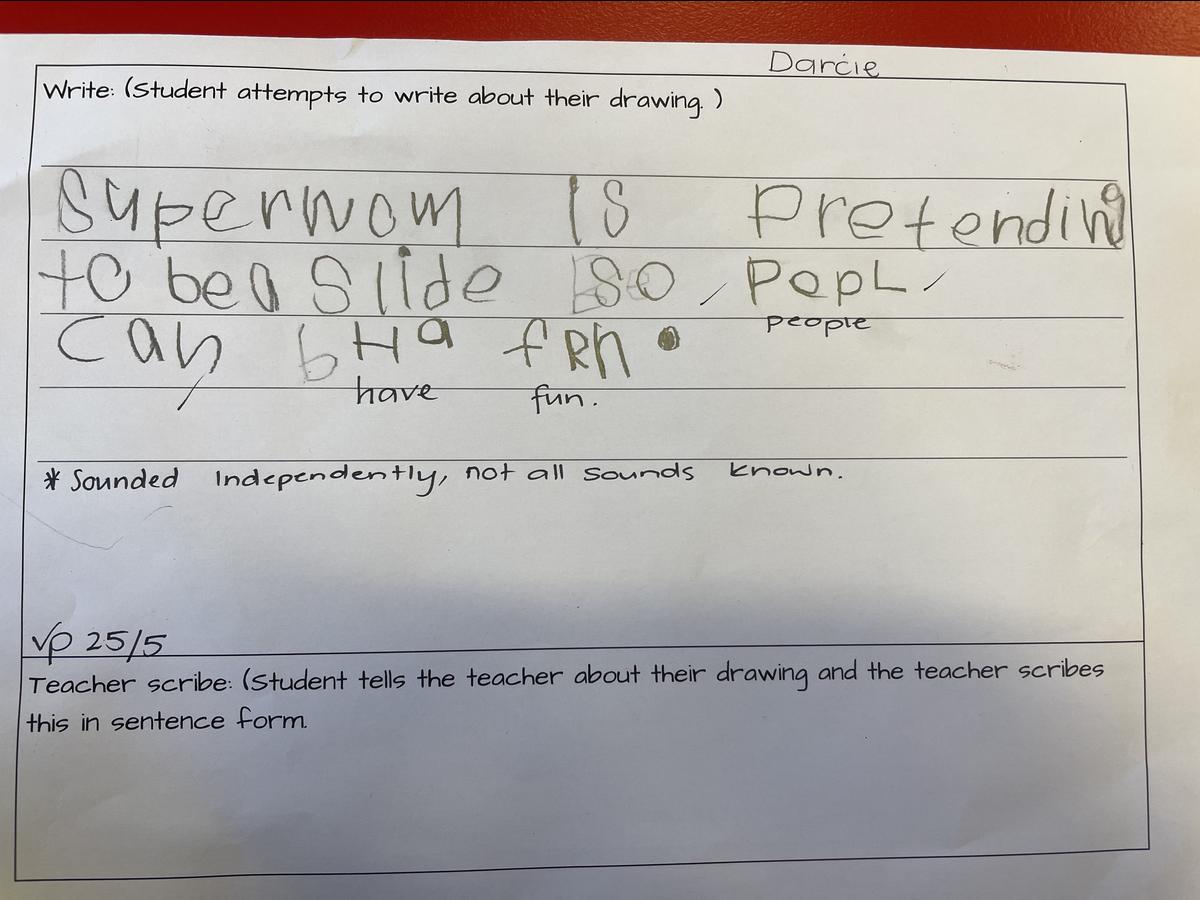 Darcie
Write: (Student attempts to write about their drawing. )
Superwom is Pretending
to bea Slide so Pepl
people
can Ha frn .
have fun.
* Sounded independently, not all sounds known.
VP 25/5
Teacher scribe: (Student tells the teacher about their drawing and the teacher scribes
this in sentence form.